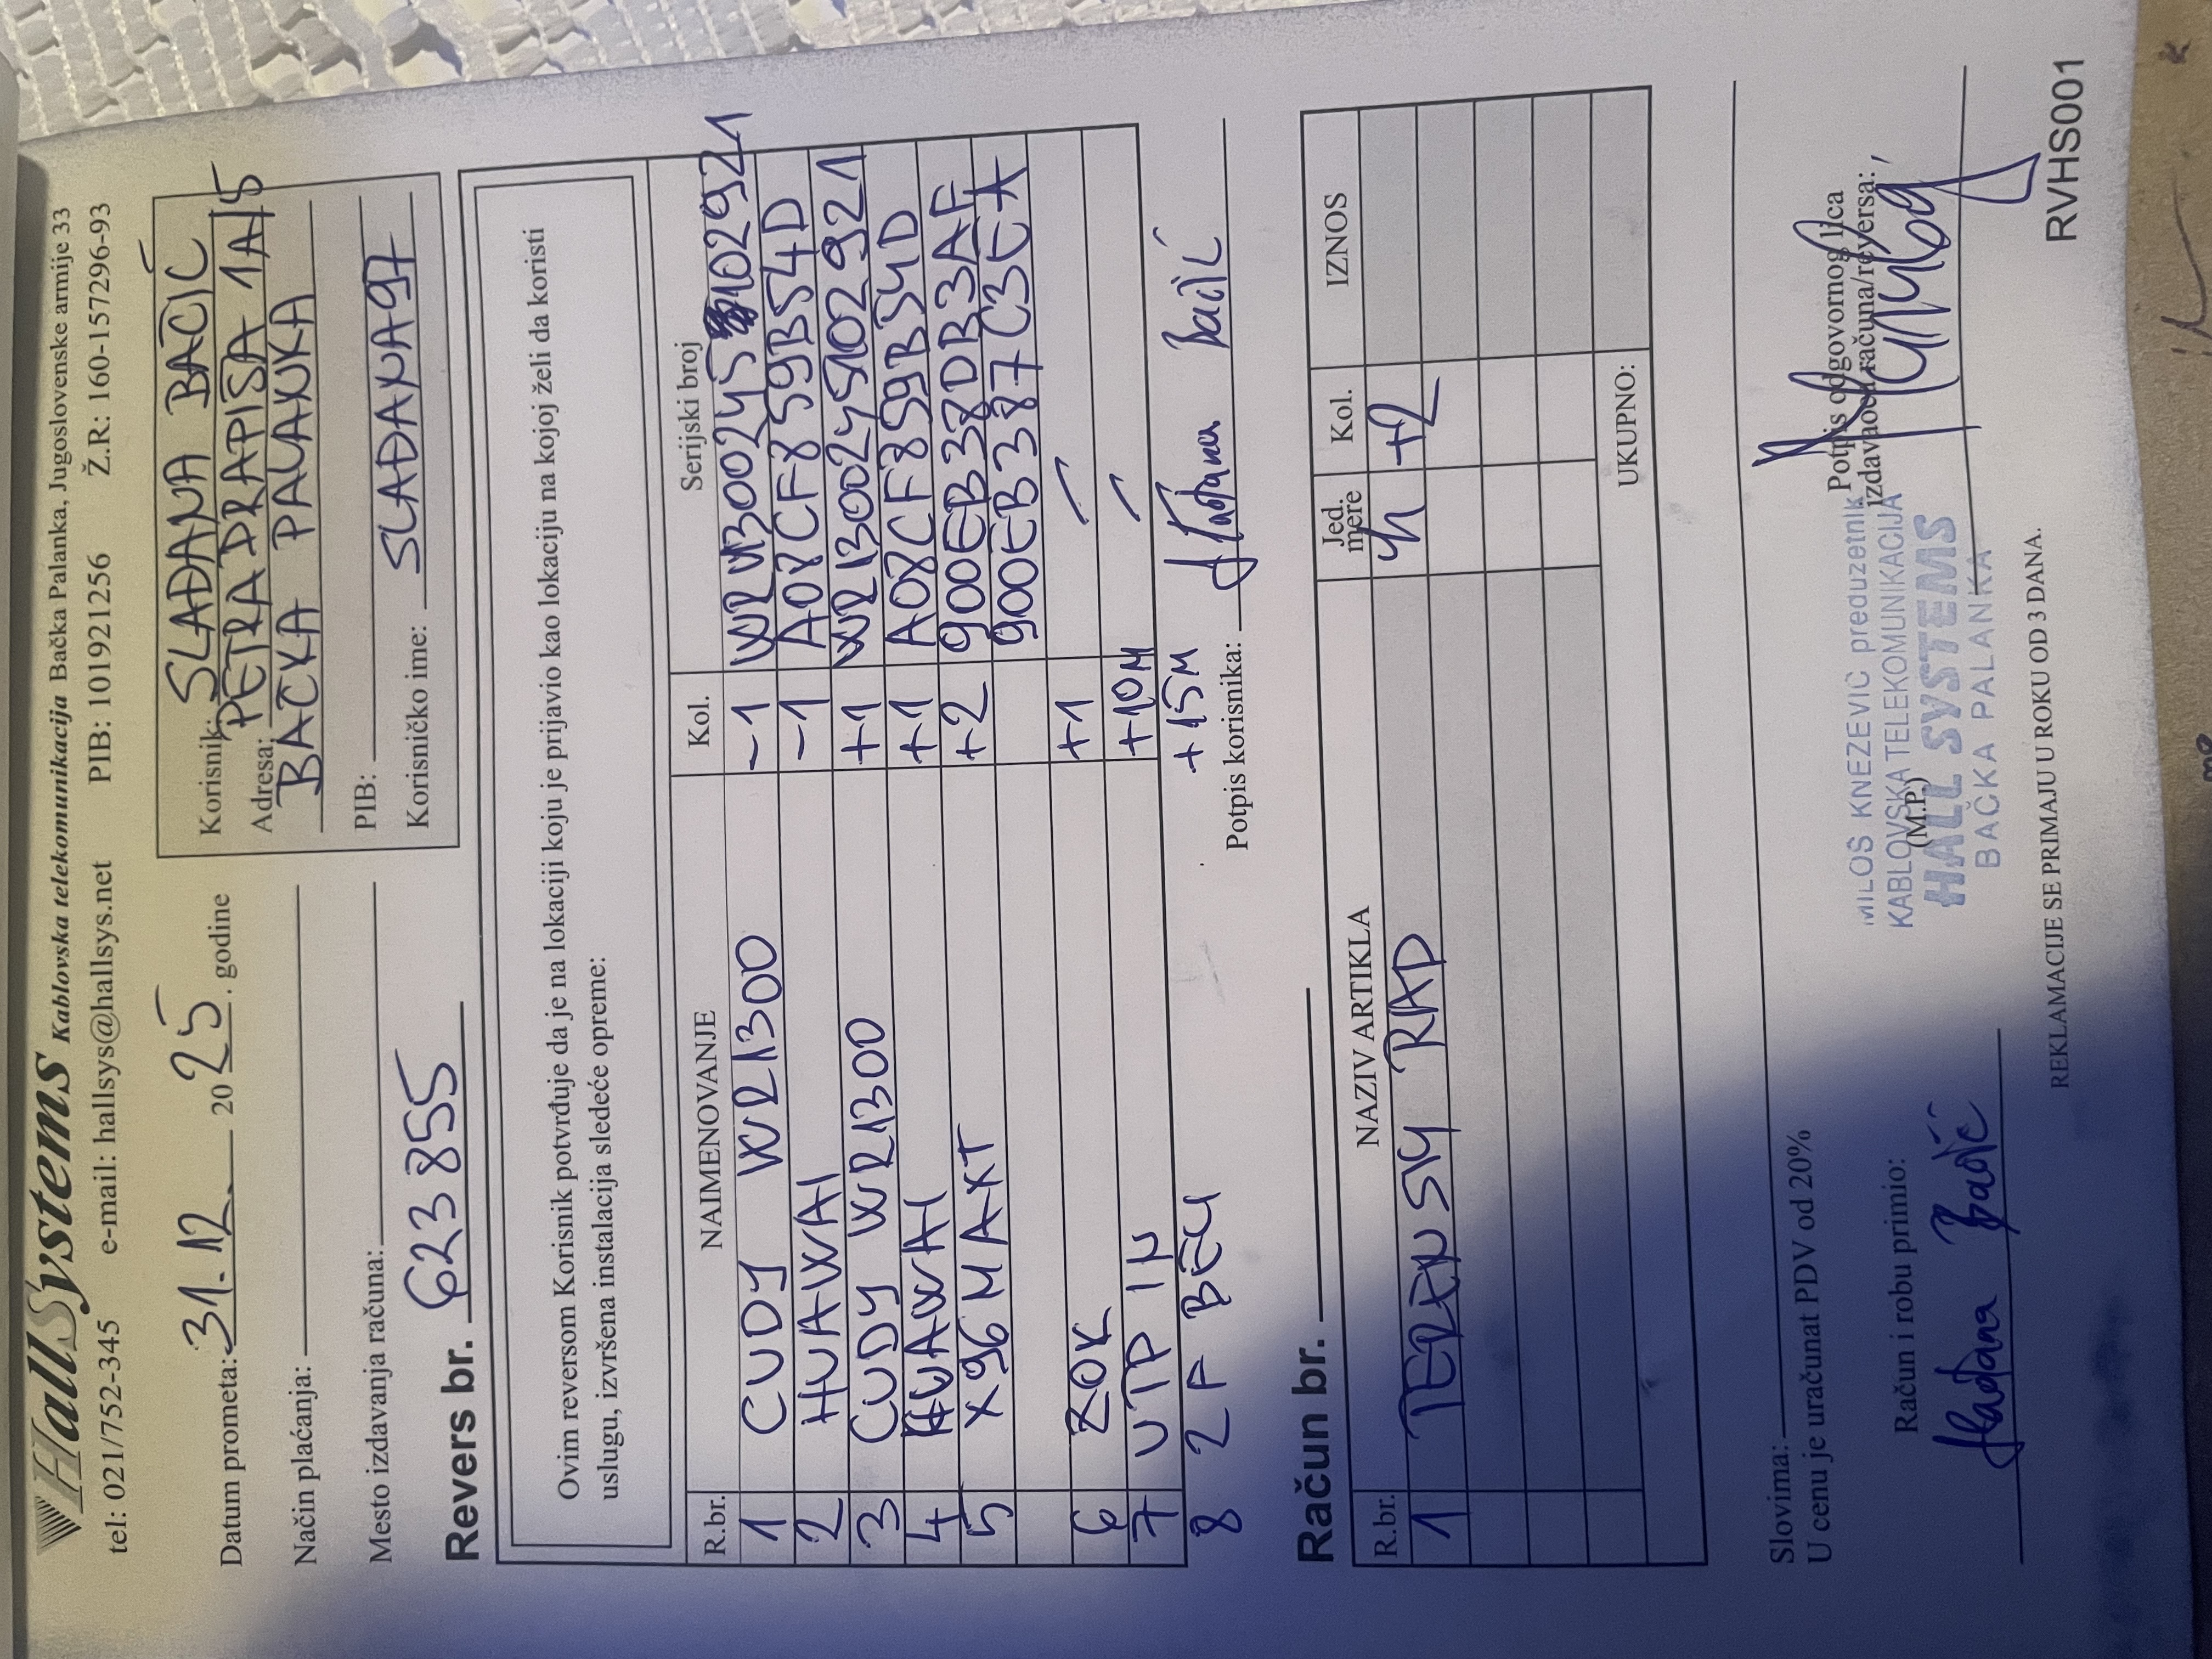 HallSystems Kablovska telekomunikacija Bačka Palanka, Jugoslovenske armije 33
tel: 021/752-345 e-mail: hallsys@hallsys.net PIB: 101921256 Ž.R: 160-157296-93
Datum prometa: 31.12. 2025. godine
Način plaćanja:
Mesto izdavanja računa:
Korisnik: SLAĐANA BAČIĆ
Adresa: PETRA DRAPŠINA 1A/5
BAČKA PALANKA
PIB:
Korisničko ime: SLADANA97
Revers br. 623855
Ovim reversom Korisnik potvrđuje da je na lokaciji koju je prijavio kao lokaciju na kojoj želi da koristi
uslugu, izvršena instalacija sledeće opreme:
R.br. NAIMENOVANJE Kol. Serijski broj
1 CUDY WR1300 -1 WR1300245102921
2 HUAWAI -1 A08CF859B54D
3 CUDY WR1300 +1 WR1300245102921
4 HUAWAI +1 A08CF859B54D
5 X96 MAXT +2 900EB387DB3AF
900EB387C3EA
6 ZOK +1 /
7 UTP IN +10M /
8 2F BELI +15M
Potpis korisnika: Slađana Bačić
Račun br.
R.br. NAZIV ARTIKLA Jed. mere Kol. IZNOS
1 TERENSKI RAD h +2
UKUPNO:
Slovima:
U cenu je uračunat PDV od 20%
Račun i robu primio:
Slađana Bačić
MILOS KNEZEVIC preduzetnik
KABLOVSKA TELEKOMUNIKACIJA
HALL SYSTEMS
BAČKA PALANKA
(M.P.)
Potpis odgovornog lica
izdavaoca računa/reversa:
REKLAMACIJE SE PRIMAJU U ROKU OD 3 DANA.
RVHS001